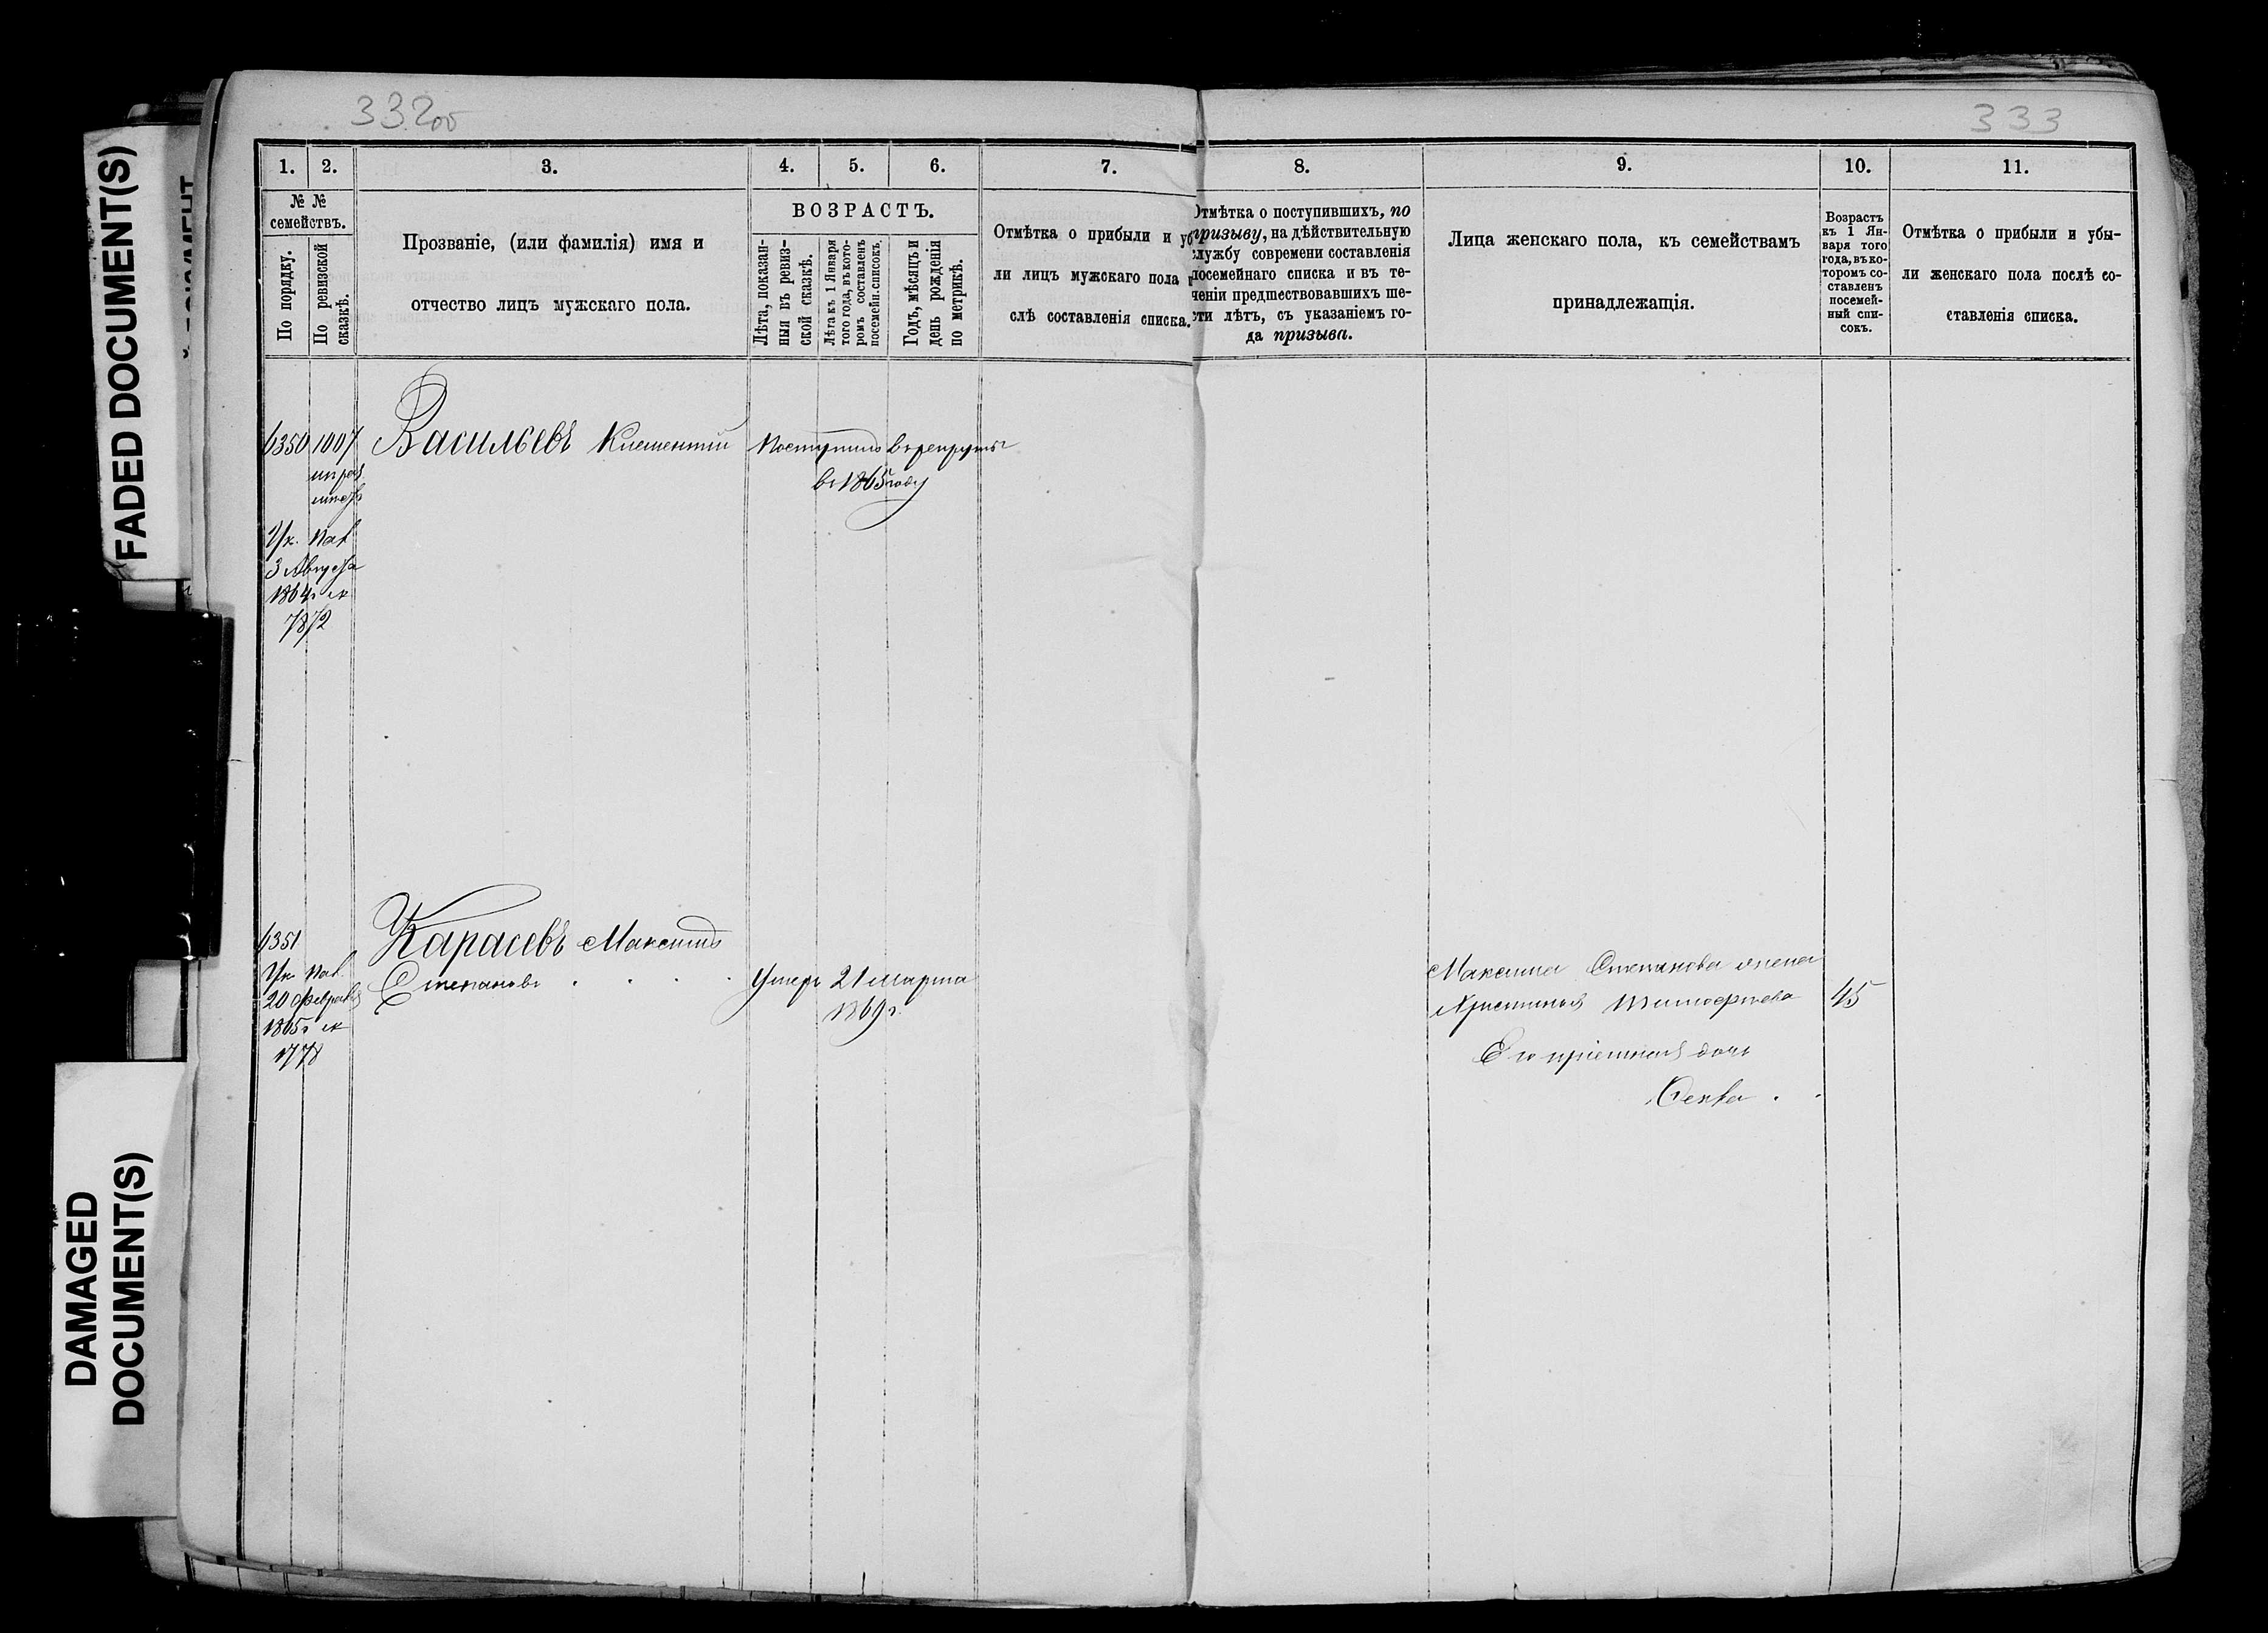 332об
333
FADED DOCUMENT(S)
DAMAGED
DOCUMENT(S)
1.
2.
3.
4.
5.
6.
7.
8.
9.
10.
11.
№ №
семействъ.
По порядку.
По ревизской
сказкѣ.
Прозваніе, (или фамилія) имя и
отчество лицъ мужскаго пола.
ВОЗРАСТЪ.
Лѣта, показан-
ныя въ ревиз-
ской сказкѣ.
Лѣта къ 1 Января
того года, въ кото-
ромъ составленъ
посемейн. списокъ.
Годъ, мѣсяцъ и
день рожденія
по метрикѣ.
Отмѣтка о прибыли и уб
ли лицъ мужскаго пола п
слѣ составленія списка.
Отмѣтка о поступившихъ, по
призыву, на дѣйствительную
службу современи составленія
посемейнаго списка и въ те-
ченіи предшествовавшихъ ше-
сти лѣтъ, съ указаніемъ го-
да призыва.
Лица женскаго пола, къ семействамъ
принадлежащія.
Возрастъ
къ 1 Ян-
варя того
года, въ ко-
торомъ со-
ставленъ
посемей-
ный спи-
сокъ.
Отмѣтка о прибыли и убы-
ли женскаго пола послѣ со-
ставленія списка.
6350 1007 Васильевъ Климентій Поступилъ въ рекруты
въ 1865 году
Ук. Пал
3 Августа
1864 г №
7872
6351 Карасевъ Максимъ
Ук Пал. Степановъ Умеръ 21 марта
20 Февраля 1869 г.
1865 г №
1778
Максима Степанова жена
Христинья Тимофѣева 45
Его пріемная дочь
Фекла